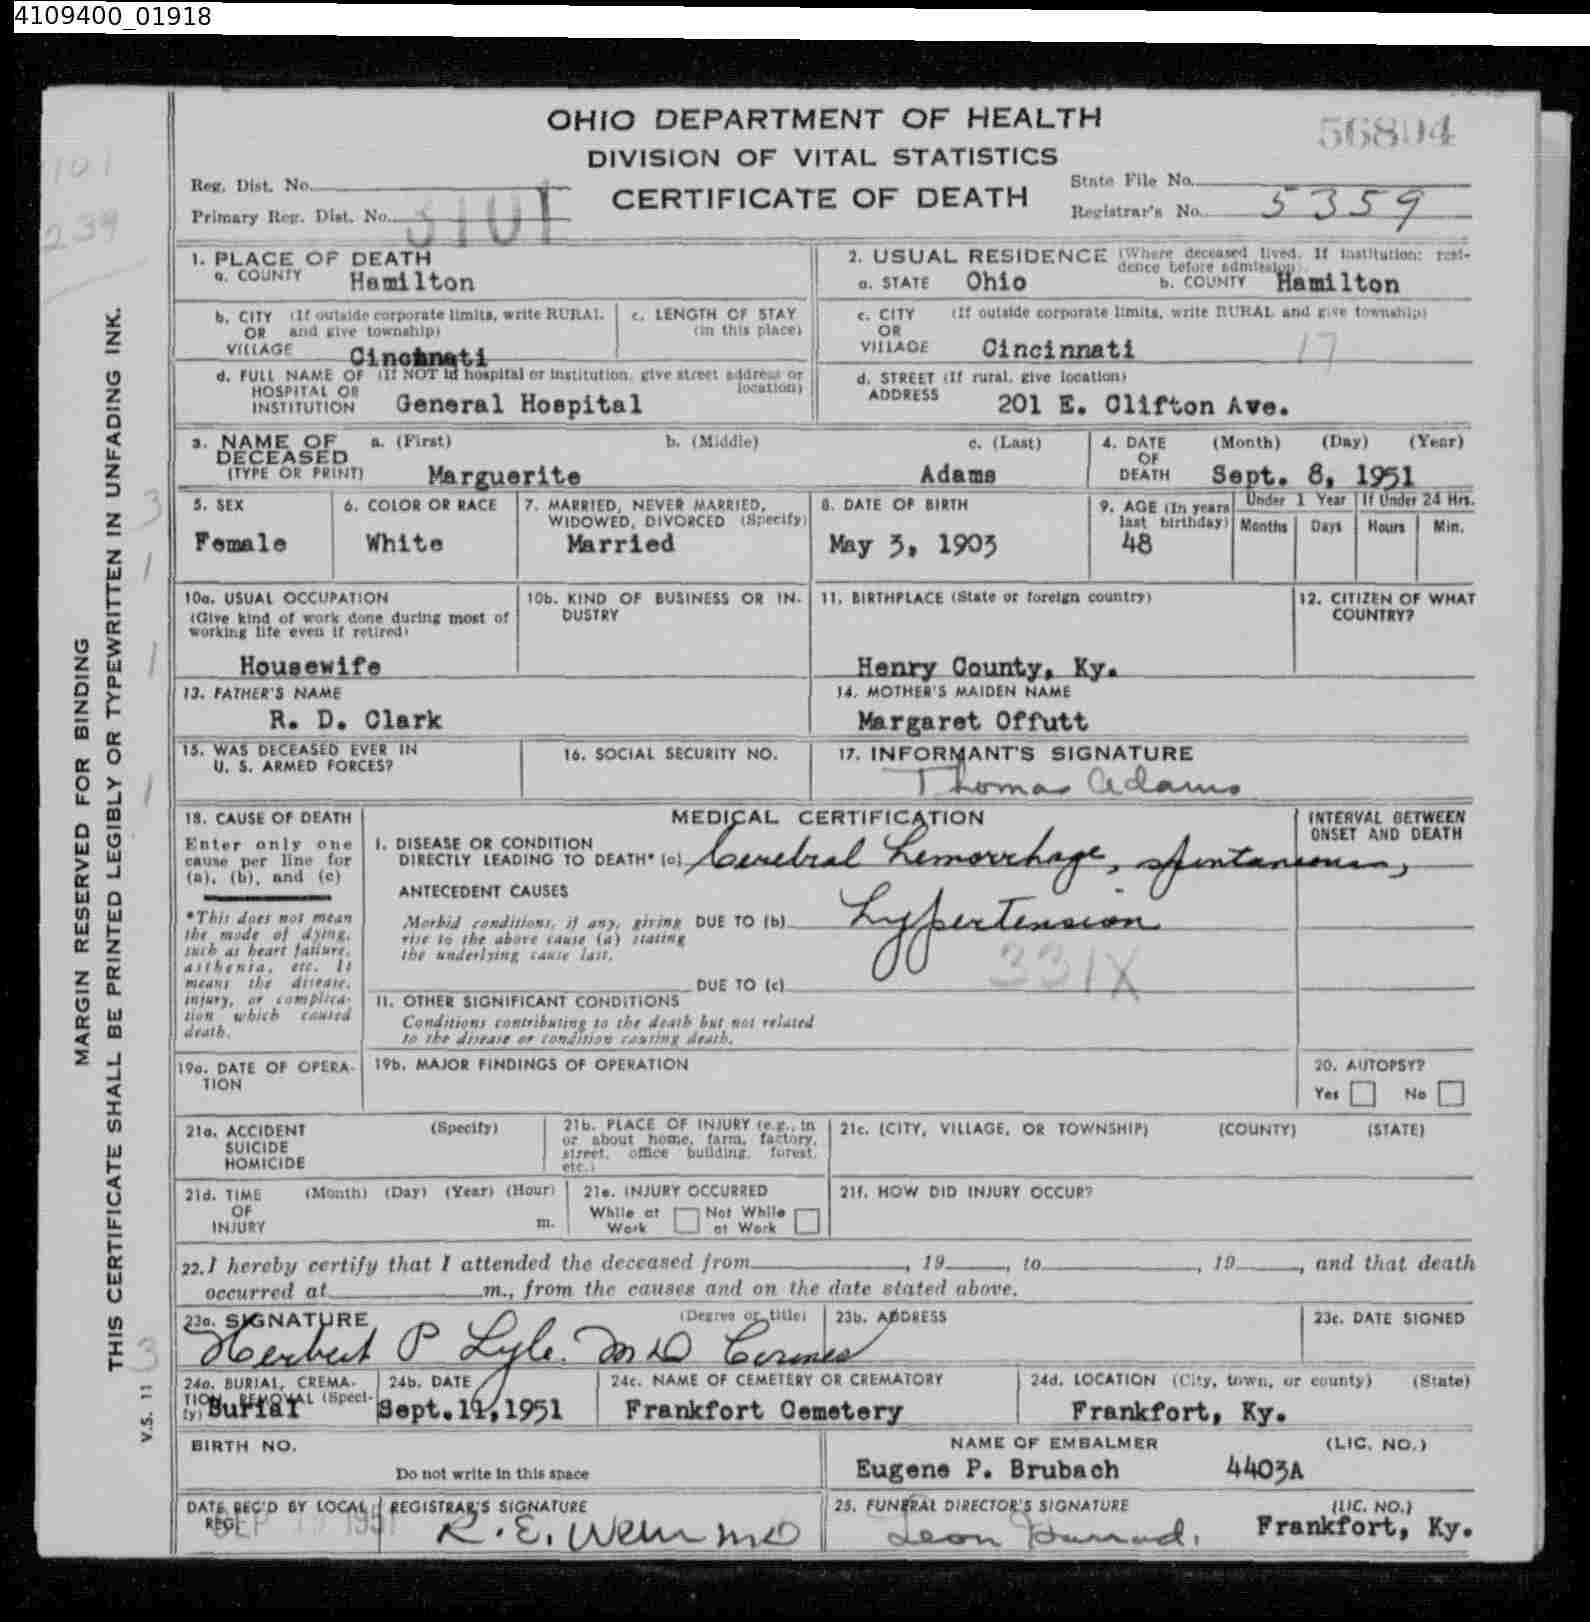 4109400_01918
OHIO DEPARTMENT OF HEALTH
DIVISION OF VITAL STATISTICS
CERTIFICATE OF DEATH
56804
Reg. Dist. No.
Primary Reg. Dist. No. 3101
State File No.
Registrar's No. 5359
1. PLACE OF DEATH
a. COUNTY Hamilton
2. USUAL RESIDENCE (Where deceased lived. If institution: resi-
dence before admission).
a. STATE Ohio b. COUNTY Hamilton
b. CITY (If outside corporate limits, write RURAL
OR and give township)
VILLAGE Cincinnati
c. LENGTH OF STAY
(in this place)
c. CITY (If outside corporate limits, write RURAL and give township)
OR
VILLAGE Cincinnati 17
d. FULL NAME OF (If NOT in hospital or institution, give street address or
HOSPITAL OR location)
INSTITUTION General Hospital
d. STREET (If rural, give location)
ADDRESS 201 E. Clifton Ave.
3. NAME OF a. (First) b. (Middle) c. (Last)
DECEASED
(TYPE OR PRINT) Marguerite Adams
4. DATE (Month) (Day) (Year)
OF
DEATH Sept. 8, 1951
5. SEX
Female
6. COLOR OR RACE
White
7. MARRIED, NEVER MARRIED,
WIDOWED, DIVORCED (Specify)
Married
8. DATE OF BIRTH
May 3, 1903
9. AGE (In years
last birthday)
48
Under 1 Year
Months Days
If Under 24 Hrs.
Hours Min.
10a. USUAL OCCUPATION
(Give kind of work done during most of
working life even if retired)
Housewife
10b. KIND OF BUSINESS OR IN-
DUSTRY
11. BIRTHPLACE (State or foreign country)
Henry County, Ky.
12. CITIZEN OF WHAT
COUNTRY?
13. FATHER'S NAME
R. D. Clark
14. MOTHER'S MAIDEN NAME
Margaret Offutt
15. WAS DECEASED EVER IN
U. S. ARMED FORCES?
16. SOCIAL SECURITY NO.
17. INFORMANT'S SIGNATURE
Thomas Adams
18. CAUSE OF DEATH
Enter only one
cause per line for
(a), (b), and (c)
*This does not mean
the mode of dying,
such as heart failure,
asthenia, etc. It
means the disease,
injury, or complica-
tion which caused
death.
MEDICAL CERTIFICATION
INTERVAL BETWEEN
ONSET AND DEATH
I. DISEASE OR CONDITION
DIRECTLY LEADING TO DEATH* (a) Cerebral hemorrhage, spontaneous,
ANTECEDENT CAUSES
Morbid conditions, if any, giving DUE TO (b) hypertension
rise to the above cause (a) stating
the underlying cause last.
331X
DUE TO (c)
II. OTHER SIGNIFICANT CONDITIONS
Conditions contributing to the death but not related
to the disease or condition causing death.
19a. DATE OF OPERA-
TION
19b. MAJOR FINDINGS OF OPERATION
20. AUTOPSY?
Yes No
21a. ACCIDENT (Specify)
SUICIDE
HOMICIDE
21b. PLACE OF INJURY (e.g., in
or about home, farm, factory,
street, office building, forest,
etc.)
21c. (CITY, VILLAGE, OR TOWNSHIP) (COUNTY) (STATE)
21d. TIME (Month) (Day) (Year) (Hour)
OF
INJURY m.
21e. INJURY OCCURRED
While at Not While
Work at Work
21f. HOW DID INJURY OCCUR?
22. I hereby certify that I attended the deceased from , 19 , to , 19 , and that death
occurred at m., from the causes and on the date stated above.
23a. SIGNATURE (Degree or title)
Herbert P Lyle. MD Coroner
23b. ADDRESS
23c. DATE SIGNED
24a. BURIAL, CREMA-
TION, REMOVAL (Speci-
fy) Burial
24b. DATE
Sept.11,1951
24c. NAME OF CEMETERY OR CREMATORY
Frankfort Cemetery
24d. LOCATION (City, town, or county) (State)
Frankfort, Ky.
BIRTH NO.
Do not write in this space
NAME OF EMBALMER (LIC. NO.)
Eugene P. Brubach 4403A
DATE REC'D BY LOCAL
REG.
SEP 1951
REGISTRAR'S SIGNATURE
R. E. Wehr MD
25. FUNERAL DIRECTOR'S SIGNATURE (LIC. NO.)
Leon Frankfort, Ky.
MARGIN RESERVED FOR BINDING
THIS CERTIFICATE SHALL BE PRINTED LEGIBLY OR TYPEWRITTEN IN UNFADING INK.
V.S. 11
101
239
3
1
1
1
3